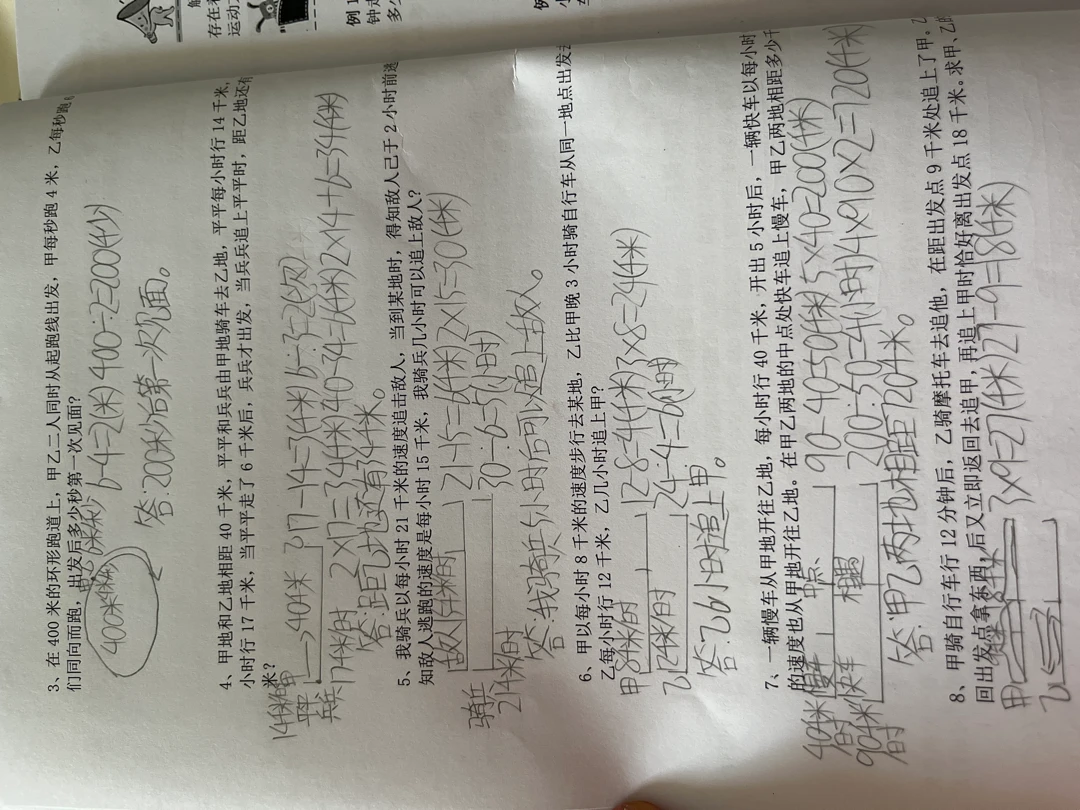 解
存在着
运动
例 1
钟走
多少
3、在 400 米的环形跑道上，甲乙二人同时从起跑线出发，甲每秒跑 4 米，乙每秒跑
们同向而跑，出发后多少秒第一次见面？
6-4=2(米) 400÷2=200(秒)
400米
答:200秒后第一次见面。
4、甲地和乙地相距 40 千米，平平和兵兵由甲地骑车去乙地，平平每小时行 14 千米，
小时行 17 千米，当平平走了 6 千米后，兵兵才出发，当兵兵追上平平时，距乙地还有
米？
平平
→40千米
17-14=3(千米) 6÷3=2(次)
兵兵17千米/时
2×17=34(千米) 40-34=6(千米) 2×14+6=34(千米)
答:距乙地还有34千米。
5、我骑兵以每小时 21 千米的速度追击敌人，当到某地时，得知敌人已于 2 小时前逃
知敌人逃跑的速度是每小时 15 千米，我骑兵几小时可以追上敌人？
敌人15千米/时
21-15=6(千米) 2×15=30(千米)
骑兵
21千米/时
30÷6=5(小时)
答:我骑兵5小时后可以追上敌人。
6、甲以每小时 8 千米的速度步行去某地，乙比甲晚 3 小时骑自行车从同一地点出发
乙每小时行 12 千米，乙几小时追上甲？
甲8千米/时
12-8=4(千米) 3×8=24(千米)
乙12千米/时
24÷4=6小时
答:乙6小时追上甲。
7、一辆慢车从甲地开往乙地，每小时行 40 千米，开出 5 小时后，一辆快车以每小时
的速度也从甲地开往乙地。在甲乙两地的中点处快车追上慢车，甲乙两地相距多少千
40千米/时
慢车
中点
90-40=50(千米) 5×40=200(千米)
快车
90千米/时
相遇
200÷50=4(小时) 4×90×2=720(千米)
答:甲乙两地相距720千米。
8、甲骑自行车行 12 分钟后，乙骑摩托车去追他，在距出发点 9 千米处追上了甲。乙
回出发点拿东西，后又立即返回去追甲，再追上甲时恰好离出发点 18 千米。求甲、乙的
甲
3×9=27(千米) 27-9=18(千米)
乙